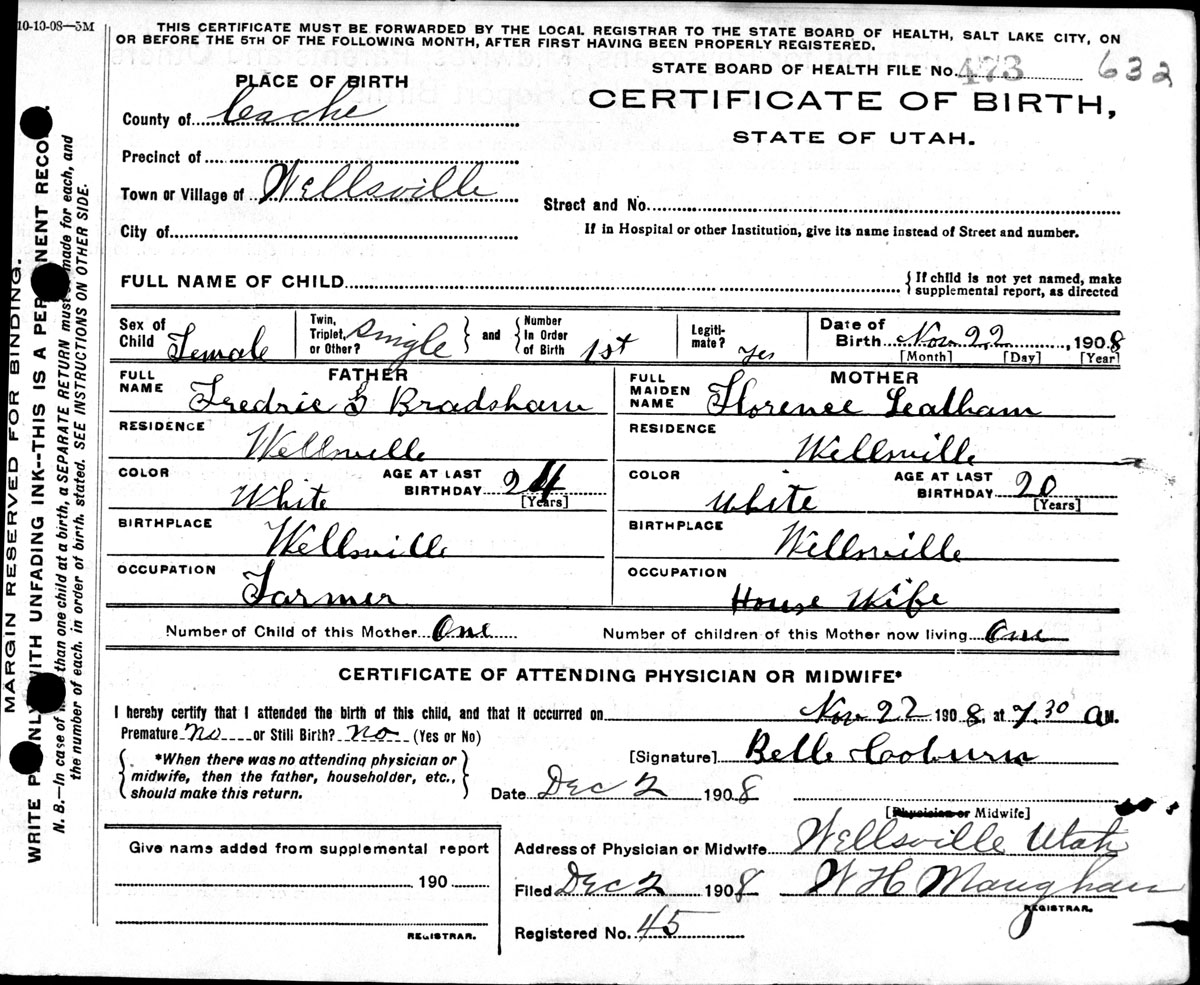 10-10-08—5M
THIS CERTIFICATE MUST BE FORWARDED BY THE LOCAL REGISTRAR TO THE STATE BOARD OF HEALTH, SALT LAKE CITY, ON
OR BEFORE THE 5TH OF THE FOLLOWING MONTH, AFTER FIRST HAVING BEEN PROPERLY REGISTERED.
STATE BOARD OF HEALTH FILE No. 473 632
PLACE OF BIRTH
CERTIFICATE OF BIRTH,
STATE OF UTAH.
County of Cache
Precinct of
Town or Village of Wellsville
Street and No.
City of
If in Hospital or other Institution, give its name instead of Street and number.
FULL NAME OF CHILD
{If child is not yet named, make
supplemental report, as directed
Sex of Child Female
Twin, Triplet, or Other? Single } and { Number In Order of Birth 1st
Legiti-mate? Yes
Date of Birth Nov 22, 1908
[Month] [Day] [Year]
FATHER
FULL NAME Fredric G Bradshaw
RESIDENCE
Wellsville
COLOR White AGE AT LAST BIRTHDAY 24 [Years]
BIRTHPLACE
Wellsville
OCCUPATION
Farmer
MOTHER
FULL MAIDEN NAME Florence Leatham
RESIDENCE
Wellsville
COLOR White AGE AT LAST BIRTHDAY 20 [Years]
BIRTHPLACE
Wellsville
OCCUPATION
House Wife
Number of Child of this Mother One Number of children of this Mother now living One
CERTIFICATE OF ATTENDING PHYSICIAN OR MIDWIFE*
I hereby certify that I attended the birth of this child, and that it occurred on Nov 22 1908, at 7.30 A M.
Premature no or Still Birth? no (Yes or No)
*When there was no attending physician or
midwife, then the father, householder, etc.,
should make this return.
[Signature] Belle Cooburn
Date Dec 2 1908
[Physician or Midwife]
Give name added from supplemental report
190
REGISTRAR.
Address of Physician or Midwife Wellsville Utah
Filed Dec 2 1908 W H Maughan
REGISTRAR.
Registered No. 45
MARGIN RESERVED FOR BINDING.
WRITE PLAINLY WITH UNFADING INK--THIS IS A PERMANENT RECORD.
N. B.—In case of more than one child at a birth, a SEPARATE RETURN must be made for each, and
the number of each, in order of birth, stated. SEE INSTRUCTIONS ON OTHER SIDE.